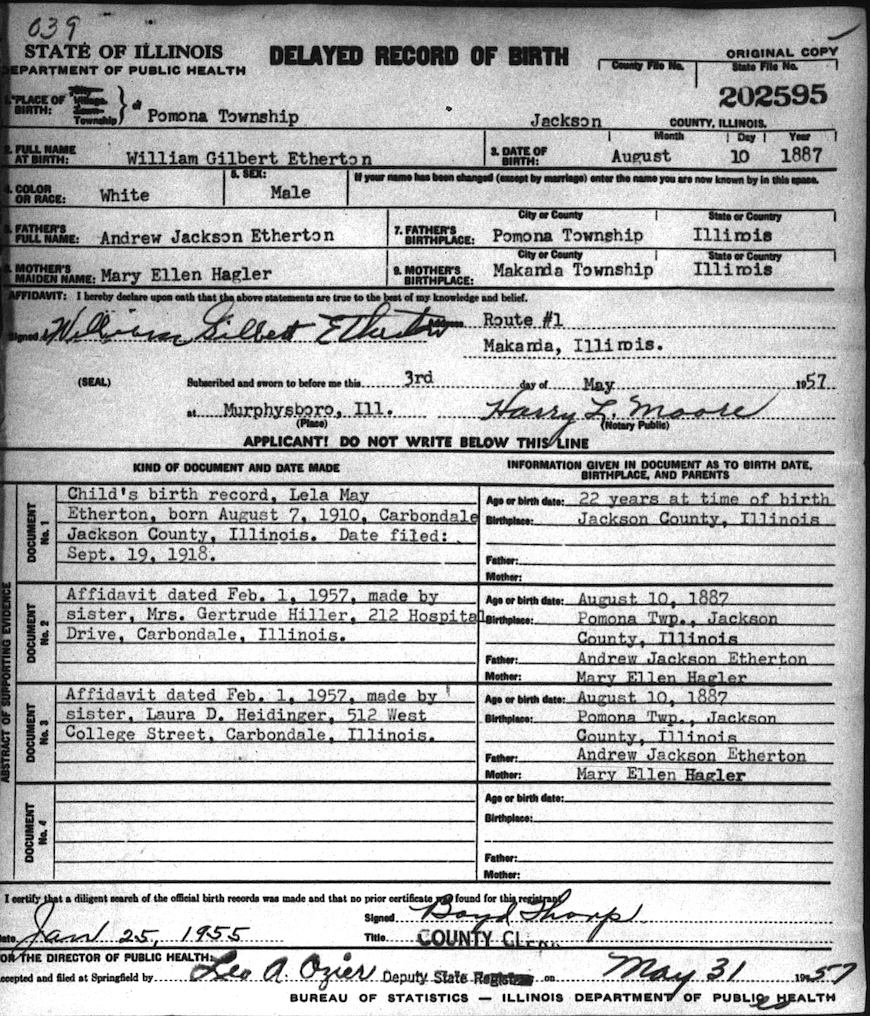 039
STATE OF ILLINOIS
DEPARTMENT OF PUBLIC HEALTH
DELAYED RECORD OF BIRTH
ORIGINAL COPY
County File No.
State File No.
202595
1. PLACE OF BIRTH: City Village Town Township } of Pomona Township Jackson COUNTY, ILLINOIS.
2. FULL NAME AT BIRTH: William Gilbert Etherton
3. DATE OF BIRTH: Month August Day 10 Year 1887
4. COLOR OR RACE: White
5. SEX: Male
If your name has been changed (except by marriage) enter the name you are now known by in this space.
6. FATHER'S FULL NAME: Andrew Jackson Etherton
7. FATHER'S BIRTHPLACE: City or County Pomona Township State or Country Illinois
8. MOTHER'S MAIDEN NAME: Mary Ellen Hagler
9. MOTHER'S BIRTHPLACE: City or County Makanda Township State or Country Illinois
AFFIDAVIT: I hereby declare upon oath that the above statements are true to the best of my knowledge and belief.
Signed William Gilbert Etherton Address Route #1
Makanda, Illinois.
(SEAL) Subscribed and sworn to before me this 3rd day of May 1957
at Murphysboro, Ill. Harry L. Moore
(Place) (Notary Public)
APPLICANT! DO NOT WRITE BELOW THIS LINE
KIND OF DOCUMENT AND DATE MADE
INFORMATION GIVEN IN DOCUMENT AS TO BIRTH DATE, BIRTHPLACE, AND PARENTS
ABSTRACT OF SUPPORTING EVIDENCE
DOCUMENT No. 1
Child's birth record, Lela May
Etherton, born August 7, 1910, Carbondale
Jackson County, Illinois. Date filed:
Sept. 19, 1918.
Age or birth date: 22 years at time of birth
Birthplace: Jackson County, Illinois
Father:
Mother:
DOCUMENT No. 2
Affidavit dated Feb. 1, 1957, made by
sister, Mrs. Gertrude Hiller, 212 Hospital
Drive, Carbondale, Illinois.
Age or birth date: August 10, 1887
Birthplace: Pomona Twp., Jackson
County, Illinois
Father: Andrew Jackson Etherton
Mother: Mary Ellen Hagler
DOCUMENT No. 3
Affidavit dated Feb. 1, 1957, made by
sister, Laura D. Heidinger, 512 West
College Street, Carbondale, Illinois.
Age or birth date: August 10, 1887
Birthplace: Pomona Twp., Jackson
County, Illinois
Father: Andrew Jackson Etherton
Mother: Mary Ellen Hagler
DOCUMENT No. 4
Age or birth date:
Birthplace:
Father:
Mother:
I certify that a diligent search of the official birth records was made and that no prior certificate was found for this registrant.
Signed Boyd Thorp
Date Jan 25, 1955 Title COUNTY CLERK
FOR THE DIRECTOR OF PUBLIC HEALTH:
Accepted and filed at Springfield by Leo A. Ozier Deputy State Registrar on May 31 1957
BUREAU OF STATISTICS — ILLINOIS DEPARTMENT OF PUBLIC HEALTH
es